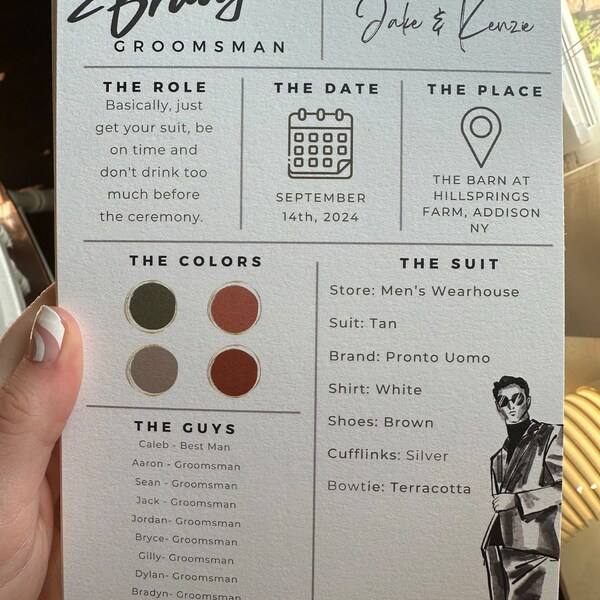 GROOMSMAN
Jake & Kenzie
THE ROLE
Basically, just
get your suit, be
on time and
don't drink too
much before
the ceremony.
THE DATE
SEPTEMBER
14th, 2024
THE PLACE
THE BARN AT
HILLSPRINGS
FARM, ADDISON
NY
THE COLORS
THE GUYS
Caleb - Best Man
Aaron - Groomsman
Sean - Groomsman
Jack - Groomsman
Jordan- Groomsman
Bryce- Groomsman
Gilly- Groomsman
Dylan- Groomsman
Bradyn- Groomsman
THE SUIT
Store: Men's Wearhouse
Suit: Tan
Brand: Pronto Uomo
Shirt: White
Shoes: Brown
Cufflinks: Silver
Bowtie: Terracotta